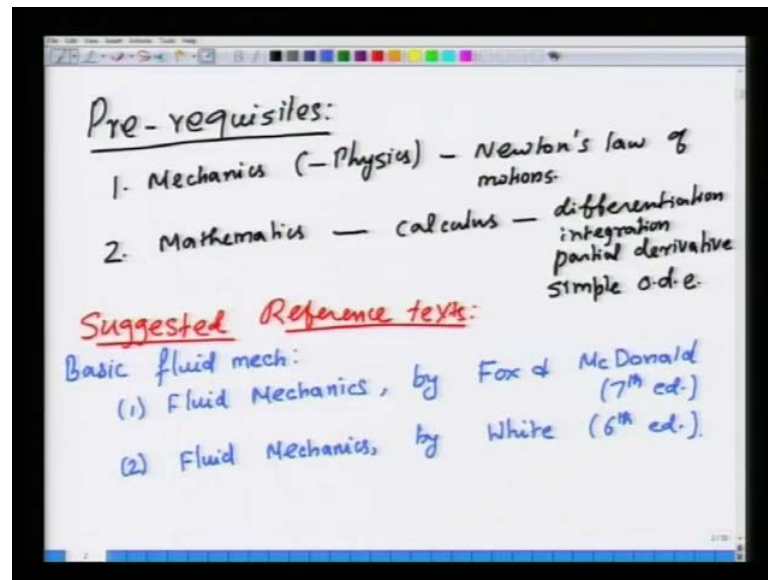 Pre-requisites:
1. Mechanics (-Physics) - Newton's law of
motions.
2. Mathematics — calculus — differentiation
integration
partial derivative
simple o.d.e.
Suggested Reference texts:
Basic fluid mech:
(1) Fluid Mechanics, by Fox & McDonald
(7th ed.)
(2) Fluid Mechanics, by White (6th ed.).
2